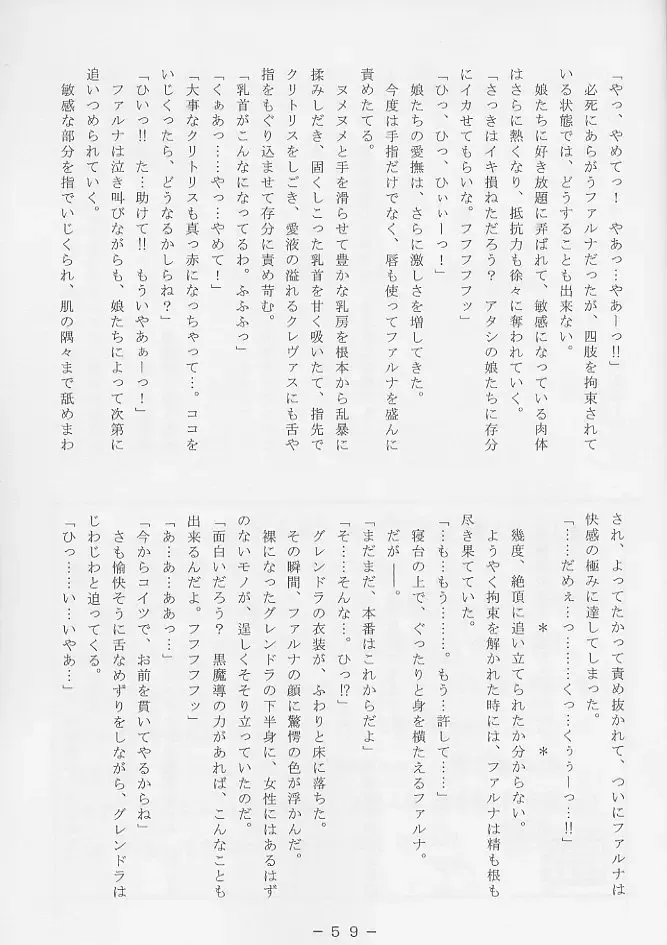 「やっ、やめてっ！　やあっ…やあーっ!!」
　必死にあらがうファルナだったが、四肢を拘束されて
いる状態では、どうすることも出来ない。
　娘たちに好き放題に弄ばれて、敏感になっている肉体
はさらに熱くなり、抵抗力も徐々に奪われていく。
「さっきはイキ損ねただろう？　アタシの娘たちに存分
にイカせてもらいな。フフフフフッ」
「ひっ、ひっ、ひぃぃーっ！」
　娘たちの愛撫は、さらに激しさを増してきた。
　今度は手指だけでなく、唇も使ってファルナを盛んに
責めたてる。
　ヌメヌメと手を滑らせて豊かな乳房を根本から乱暴に
揉みしだき、固くしこった乳首を甘く吸いたて、指先で
クリトリスをしごき、愛液の溢れるクレヴァスにも舌や
指をもぐり込ませて存分に責め苛む。
「乳首がこんなになってるわ。ふふふっ」
「くぁあっ……やっ…やめて！」
「大事なクリトリスも真っ赤になっちゃって…。ココを
いじくったら、どうなるかしらね？」
「ひいっ!!　た…助けて!!　もういやあぁーっ！」
　ファルナは泣き叫びながらも、娘たちによって次第に
追いつめられていく。
　敏感な部分を指でいじくられ、肌の隅々まで舐めまわ
され、よってたかって責め抜かれて、ついにファルナは
快感の極みに達してしまった。
「……だめぇ…っ………くっ…くぅぅーっ…!!」
＊　＊
　幾度、絶頂に追い立てられたか分からない。
　ようやく拘束を解かれた時には、ファルナは精も根も
尽き果てていた。
「…も…もう………。もう…許して……」
　寝台の上で、ぐったりと身を横たえるファルナ。
　だが――。
「まだまだ、本番はこれからだよ」
「そ……そんな…。ひっ!?」
　グレンドラの衣装が、ふわりと床に落ちた。
　その瞬間、ファルナの顔に驚愕の色が浮かんだ。
　裸になったグレンドラの下半身に、女性にはあるはず
のないモノが、逞しくそそり立っていたのだ。
「面白いだろう？　黒魔導の力があれば、こんなことも
出来るんだよ。フフフフフッ」
「あ…あ…ああっ…」
「今からコイツで、お前を貫いてやるからね」
　さも愉快そうに舌なめずりをしながら、グレンドラは
じわじわと迫ってくる。
「ひっ……い…いやぁ…」
－５９－